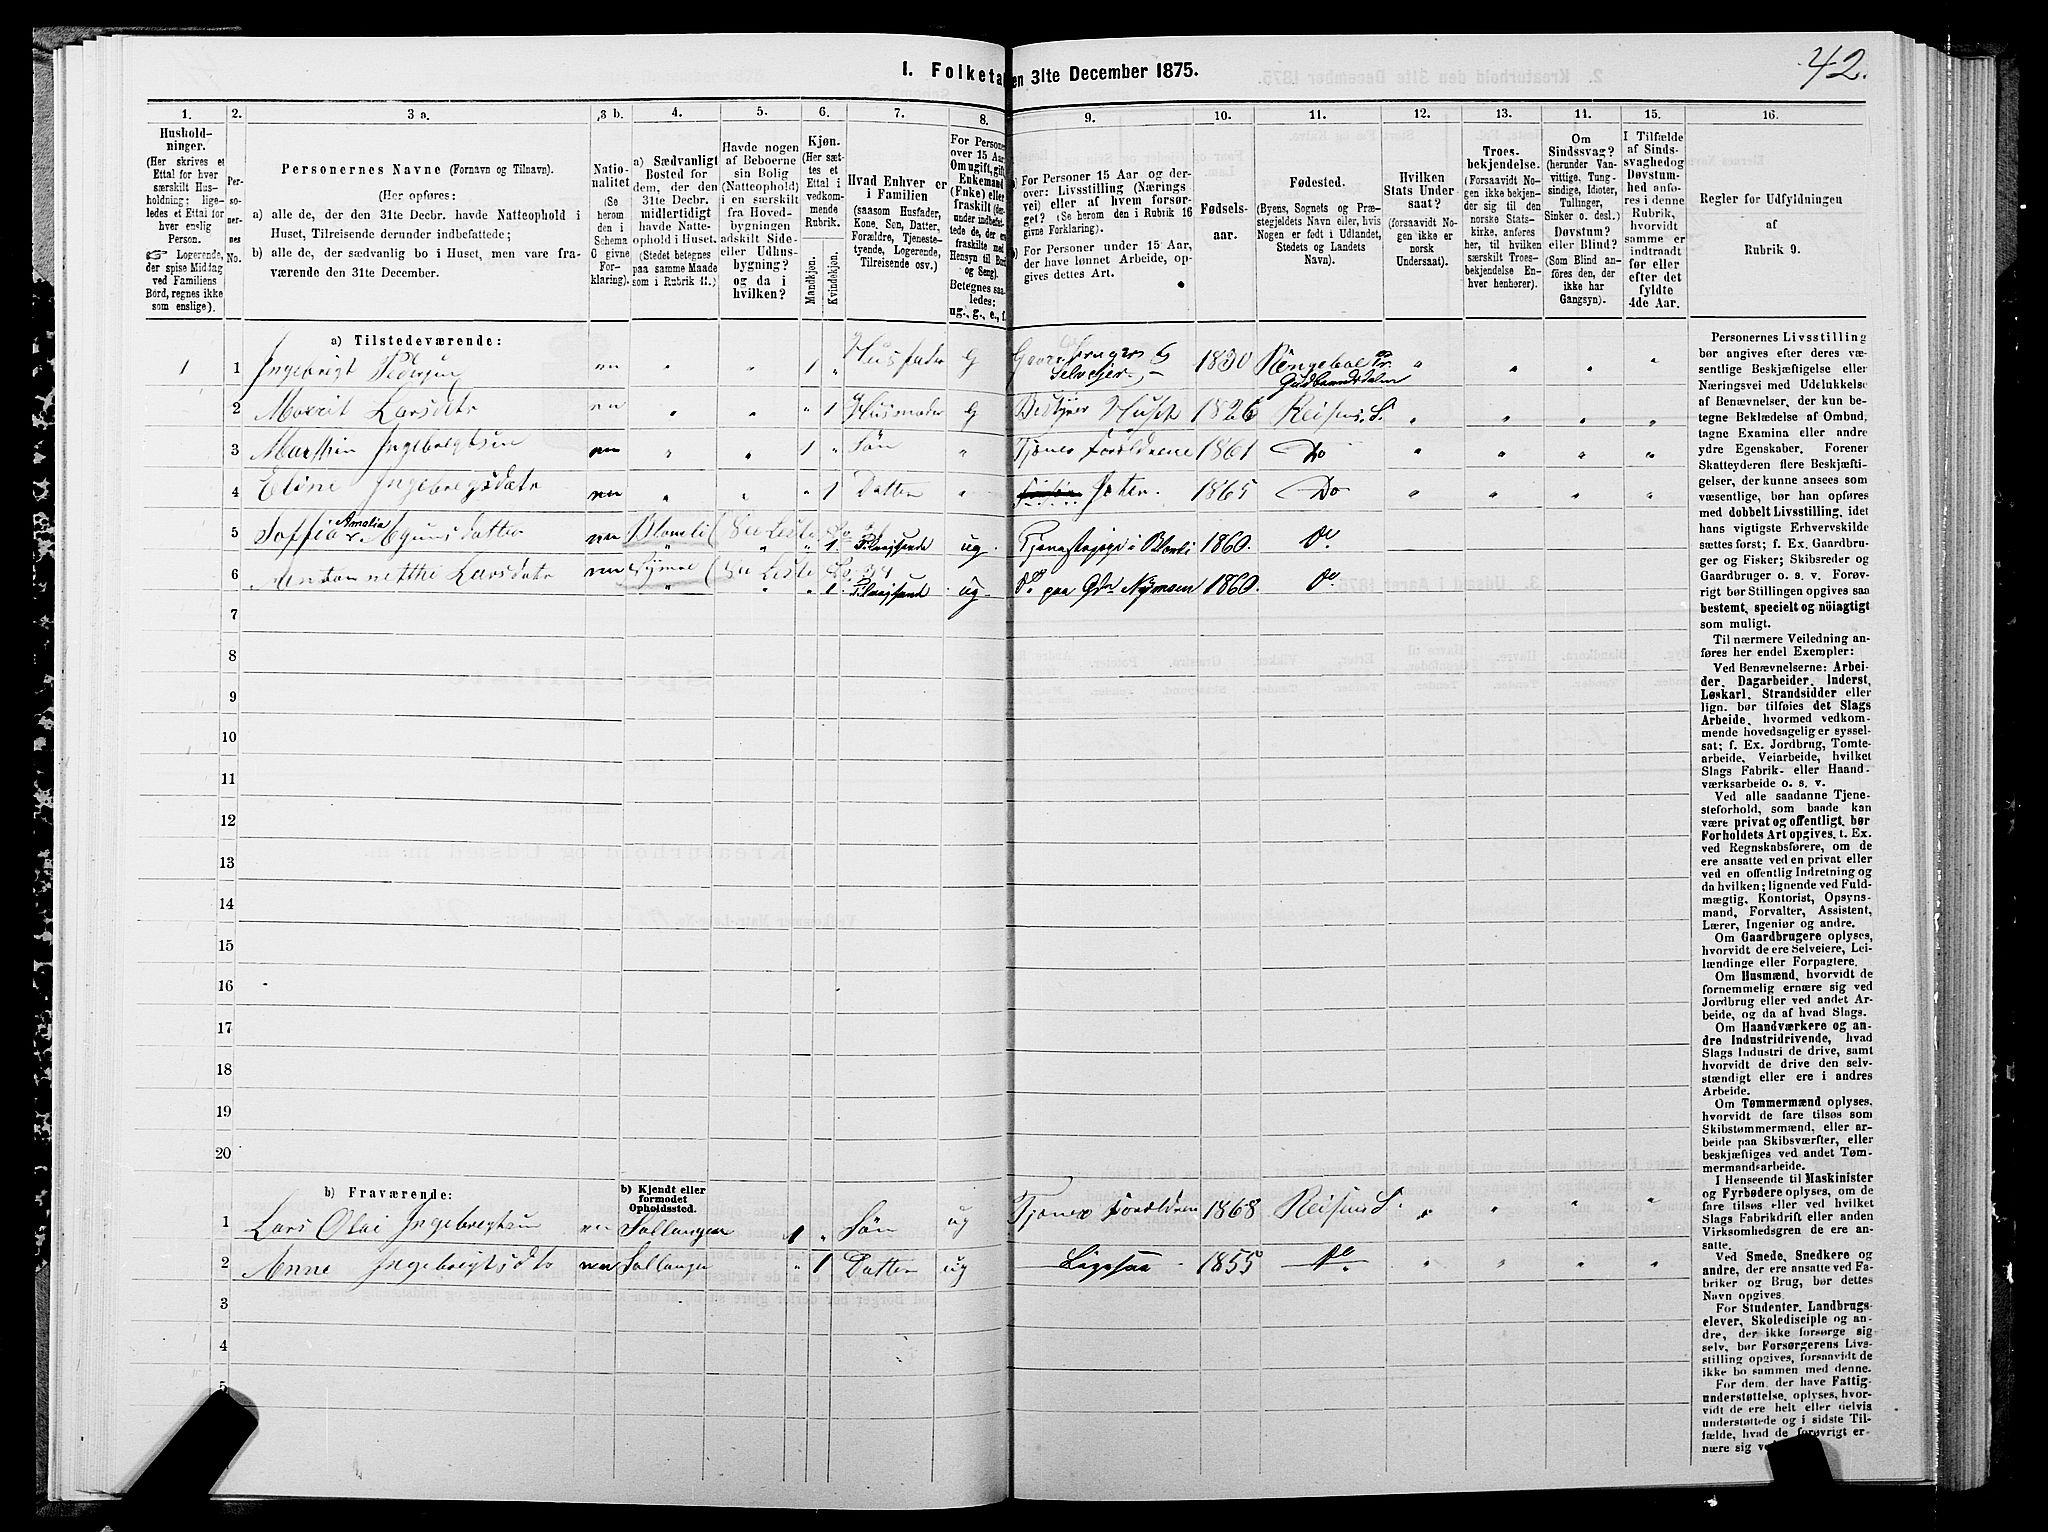 42.
I. Folketa en 31te December 1875.
1. 2. 3 a. 3 b. 4. 5. 6. 7. 8. 9. 10. 11. 12. 13. 14. 15. 16.
Hushold-
ninger.
(Her skrives et
Ettal for hver
særskilt Hus-
holdning; lige-
ledes et Ettal for
hver enslig
Person.
☞ Logerende,
der spise Middag
ved Familiens
Bord, regnes ikke
som enslige).
Per-
so-
ner-
nes
No.
Personernes Navne (Fornavn og Tilnavn).
(Her opføres:
a) alle de, der den 31te Decbr. havde Natteophold i
Huset, Tilreisende derunder indbefattede;
b) alle de, der sædvanlig bo i Huset, men vare fra-
værende den 31te December.
Natio-
nalitet
(Se
herom
den i
Schema
C givne
For-
klaring).
a) Sædvanligt
Bosted for
dem, der den
31te Decbr.
midlertidigt
havde Natte-
ophold i Huset.
(Stedet betegnes
paa samme Maade
som i Rubrik 11.)
Havde nogen
af Beboerne
sin Bolig
(Natteophold)
i en særskilt
fra Hoved-
bygningen
adskilt Side-
eller Udhus-
bygning?
og da i
hvilken?
Kjøn.
(Her sæt-
tes et
Ettal i
vedkom-
mende
Rubrik.
Mandkjøn.
Kvindekjøn.
Hvad Enhver er
i Familien
(saasom Husfader,
Kone, Søn, Datter,
Forældre, Tjeneste-
tyende, Logerende,
Tilreisende osv.)
For Personer
over 15 Aar:
Om ugift, gift,
Enkemand
(Enke) eller
fraskilt (der-
under indbefat-
tede de, der ere
fraskilte med
Hensyn til Bord
og Seng).
Betegnes saa-
ledes:
ug., g., e., f.
a) For Personer 15 Aar og der-
over: Livsstilling (Nærings-
vei) eller af hvem forsør-
get? (Se herom den i Rubrik 16
givne Forklaring).
b) For Personer under 15 Aar,
der have lønnet Arbeide, op-
gives dettes Art.
Fødsels-
aar.
Fødested.
(Byens, Sognets og Præ-
stegjeldets Navn eller, hvis
Nogen er født i Udlandet,
Stedets og Landets
Navn).
Hvilken
Stats Under-
saat?
(forsaavidt No-
gen ikke er
norsk
Undersaat).
Troes-
bekjendelse.
(Forsaavidt No-
gen ikke bekjen-
der sig til den
norske Stats-
kirke, anføres
her, til hvilken
særskilt Troes-
bekjendelse En-
hver henhører).
Om
Sindssvag?
(herunder Van-
vittige, Tung-
sindige, Idioter,
Tullinger,
Sinker o. desl.)
Døvstum?
eller Blind?
(Som Blind an-
føres den, der
ikke har
Gangsyn).
I Tilfælde
af Sinds-
svaghed og
Døvstum-
hed anfø-
res i denne
Rubrik,
hvorvidt
samme er
indtraadt
før eller
efter det
fyldte
4de Aar.
Regler for Udfyldningen
af
Rubrik 9.
a) Tilstedeværende:
1 1 Ingebrigt Pedersen nn " " 1 " Husfader G Selveier 1830 Gudbrandsdalen " " " "
2 Marrit Larsdatr nn " " " 1 Husmoder G Bestyrer 1826 Reisen S. " " " "
3 Marthin Ingebregtsen nn " " 1 " Søn " Tjener Forældrene 1861 Do " " " "
4 Eline Ingebregtsdatr nn " " " 1 Datter " 1865 Do " " " "
5 Soffie Amalia Datter nn " " 1. Tilreisende ug. 1860. Do
6 Larsdatr nn " " " 1. Tilreisende ug Do. paa 1860. Do
7
8
9
10
11
12
13
14
15
16
17
18
19
20
b) Fraværende:
b) Kjendt eller
formodet
Opholdssted.
1 Lars Olai Ingebregtsen nn Sallangen 1 " Søn ug Tjener Forældrene 1868 Reisen S. " " " "
2 Anne Ingebreigtsdtr nn Sallangen " 1 Datter ug Ligesaa 1855 Do " " " "
3
4
5
Personernes Livsstilling
bør angives efter deres væ-
sentlige Beskjæftigelse eller
Næringsvei med Udelukkelse
af Benævnelser, der kun be-
tegne Beklædelse af Ombud,
tagne Examina eller andre
ydre Egenskaber. Forener
Skatteyderen flere Beskjæfti-
gelser, der kunne ansees som
væsentlige, bør han opføres
med dobbelt Livsstilling, idet
hans vigtigste Erhvervskilde
sættes først; f. Ex. Gaardbru-
ger og Fisker; Skibsreder og
Gaardbruger o. s. v. Forøv-
rigt bør Stillingen opgives saa
bestemt, specielt og nöiagtigt
som muligt.
Til nærmere Veiledning an-
føres her endel Exempler:
Ved Benævnelserne: Arbei-
der, Dagarbeider, Inderst,
Løskarl, Strandsidder eller
lign. bør tilføies det Slags
Arbeide, hvormed vedkom-
mende hovedsagelig er syssel-
sat; f. Ex. Jordbrug, Tomte-
arbeide, Veiarbeide, hvilket
Slags Fabrik- eller Haand-
værksarbeide o. s. v.
Ved alle saadanne Tjene-
steforhold, som baade kan
være privat og offentligt, bør
Forholdets Art opgives, t. Ex.
ved Regnskabsførere, om de
ere ansatte ved en privat eller
ved en offentlig Indretning og
da hvilken; lignende ved Fuld-
mægtig, Kontorist, Opsyns-
mand, Forvalter, Assistent,
Lærer, Ingeniør og andre.
Om Gaardbrugere oplyses,
hvorvidt de ere Selveiere, Lei-
lændinge eller Forpagtere.
Om Husmænd, hvorvidt de
fornemmelig ernære sig ved
Jordbrug eller ved andet Ar-
beide, og da af hvad Slags.
Om Haandværkere og an-
dre Industridrivende, hvad
Slags Industri de drive, samt
hvorvidt de drive den selv-
stændigt eller ere i andres
Arbeide.
Om Tømmermænd oplyses,
hvorvidt de fare tilsøs som
Skibstømmermænd, eller ar-
beide paa Skibsværfter, eller
beskjæftiges ved andet Tøm-
mermandsarbeide.
I Henseende til Maskinister
og Fyrbødere oplyses, om de
fare tilsøs eller ved hvilket
Slags Fabrikdrift eller anden
Virksomhedsgren de ere an-
satte.
Ved Smede, Snedkere og
andre, der ere ansatte ved Fa-
briker og Brug, bør dettes
Navn opgives.
For Studenter, Landbrugs-
elever, Skoledisciple og an-
dre, der ikke forsørge sig
selv, bør Forsørgerens Livs-
stilling opgives, forsaavidt de
ikke bo sammen med denne.
For dem, der have Fattig-
understøttelse, oplyses, hvor-
vidt de ere helt eller delvis
understøttede og i sidste Til-
fælde, hvad de forøvrigt er-
nære sig ve